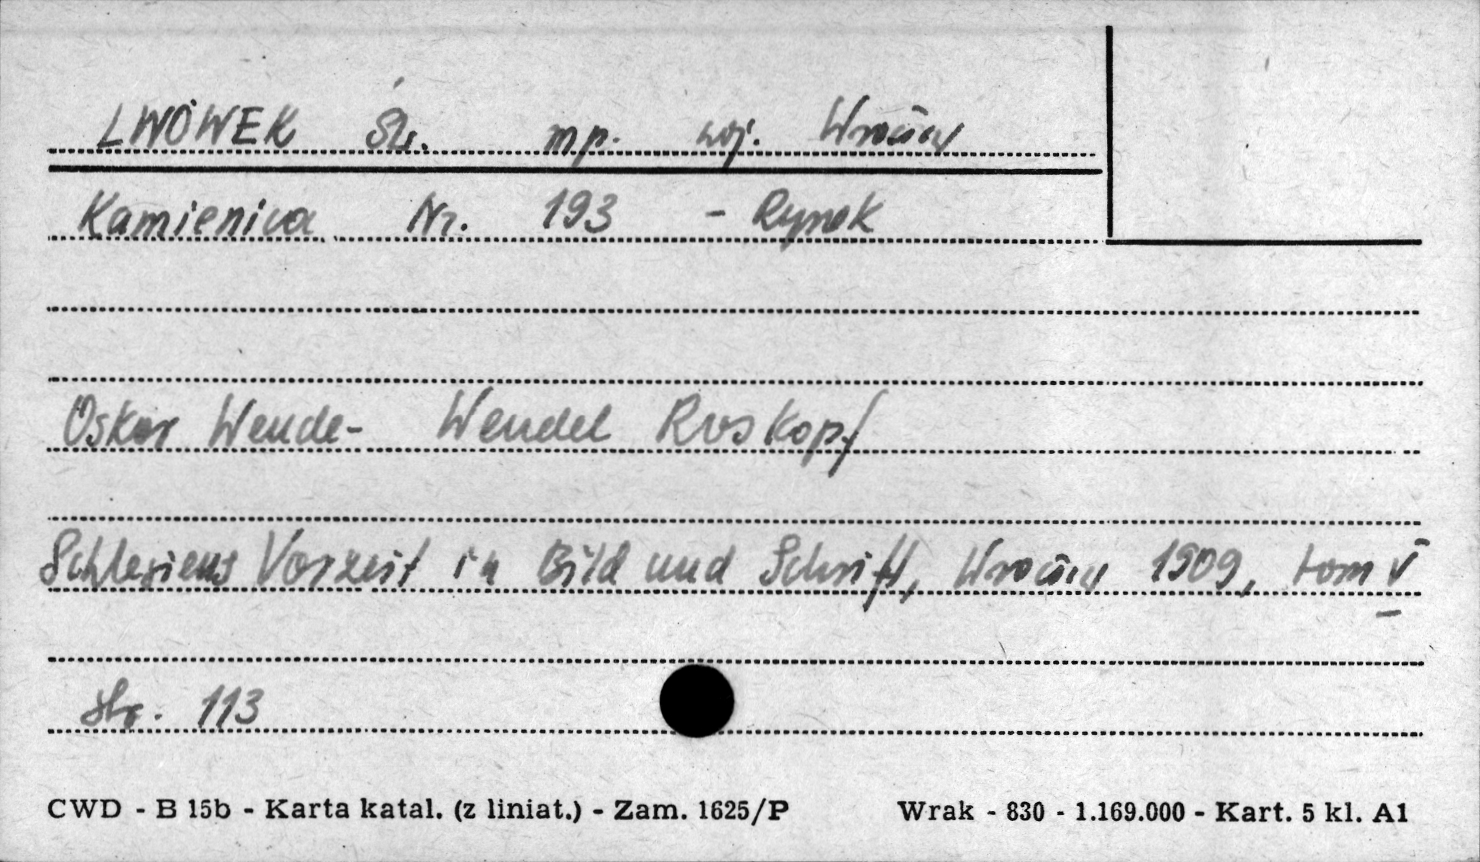 LWÓWEK Śl. mp. woj. Wrocław
Kamienica Nr. 193 - Rynek
Oskar Wende - Wendel Roskopf
Schlesiens Vorzeit in Bild und Schrift, Wrocław 1909, tom V
str. 113
CWD - B 15b - Karta katal. (z liniat.) - Zam. 1625/P Wrak - 830 - 1.169.000 - Kart. 5 kl. A1